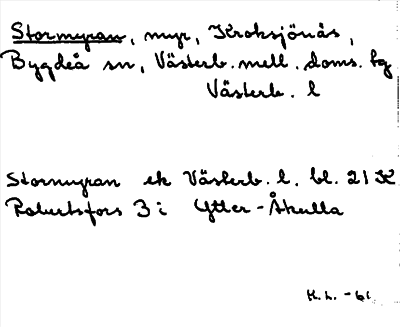 Stormyran, myr, Kroksjönäs,
Bygdeå sn, Västerb. mell. doms. hg
Västerb. l
Stormyran ek Västerb. l. bl. 21 K
Robertsfors 3 i Ytter-Åkulla
H. L. - 61